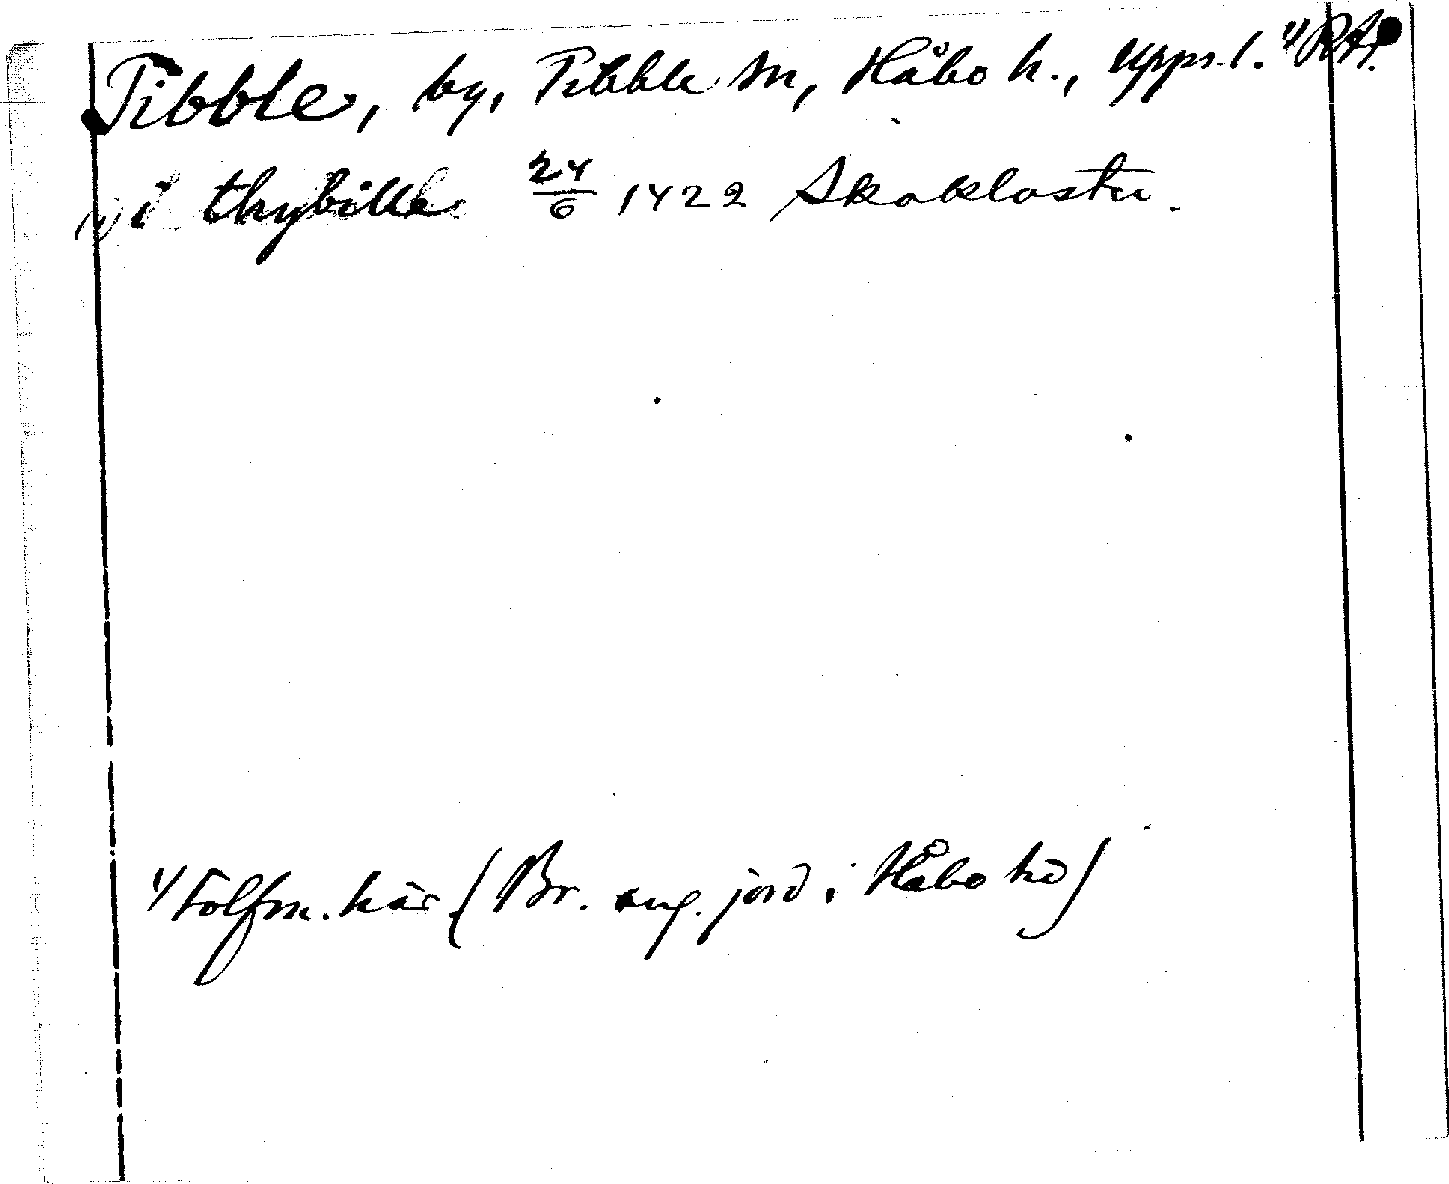 Tibble, by, Tibble sn, Håbo h., Upps. l. 1) RA.
i thybille 24/6 1422 Skokloster.
1) Tolfm. här (Br. ang. jord i Håbo hd)